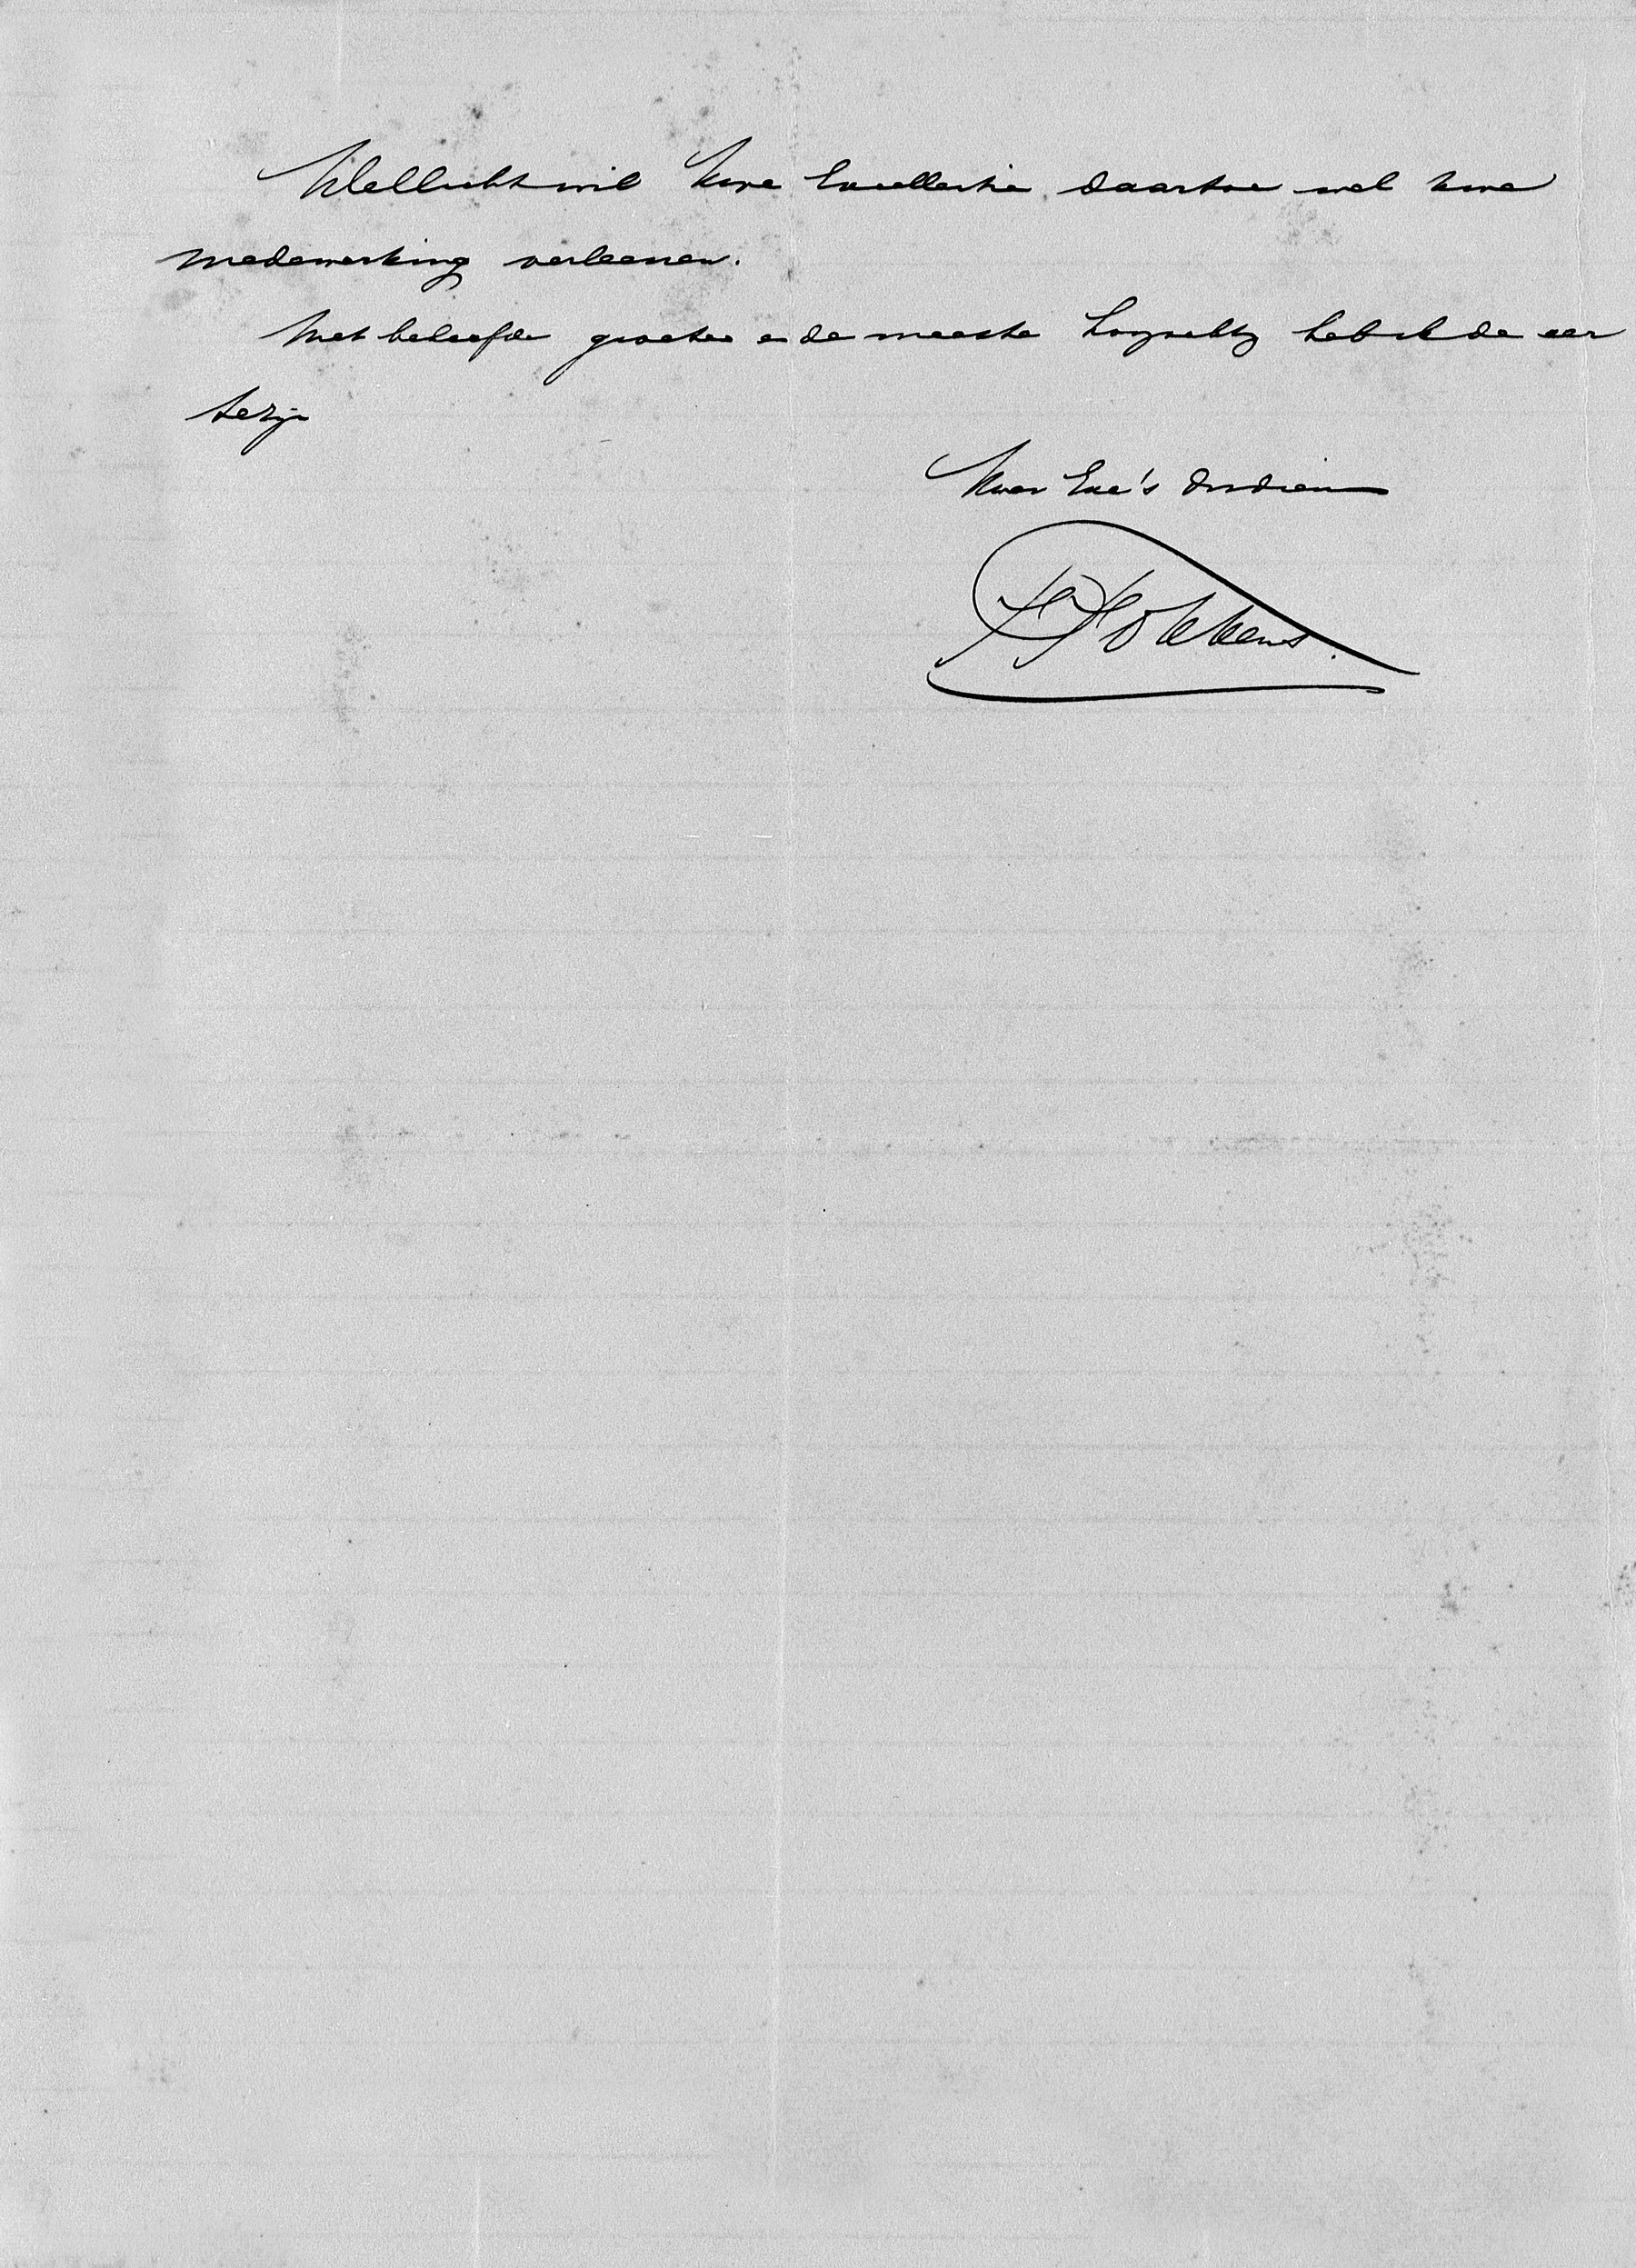 Wellicht wil Uwe Excellentie daartoe wel Uwe
medewerking verleenen.
Met beleefde groeten en de meeste hoogachtg heb ik de eer
te zijn
Uwer Exc's dw dienr